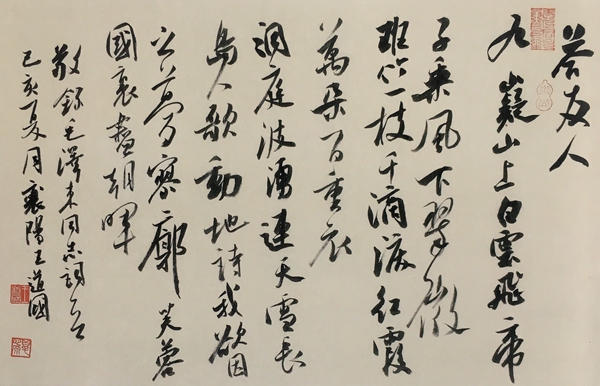 答友人
九嶷山上白雲飛帝
子乘風下翠微
斑竹一枝千滴淚紅霞
萬朵百重衣
洞庭波湧連天雪長
島人歌動地詩我欲因
之夢寥廓芙蓉
國裏盡朝暉
敬錄毛澤東同志詞一首
己亥夏月襄陽王道國